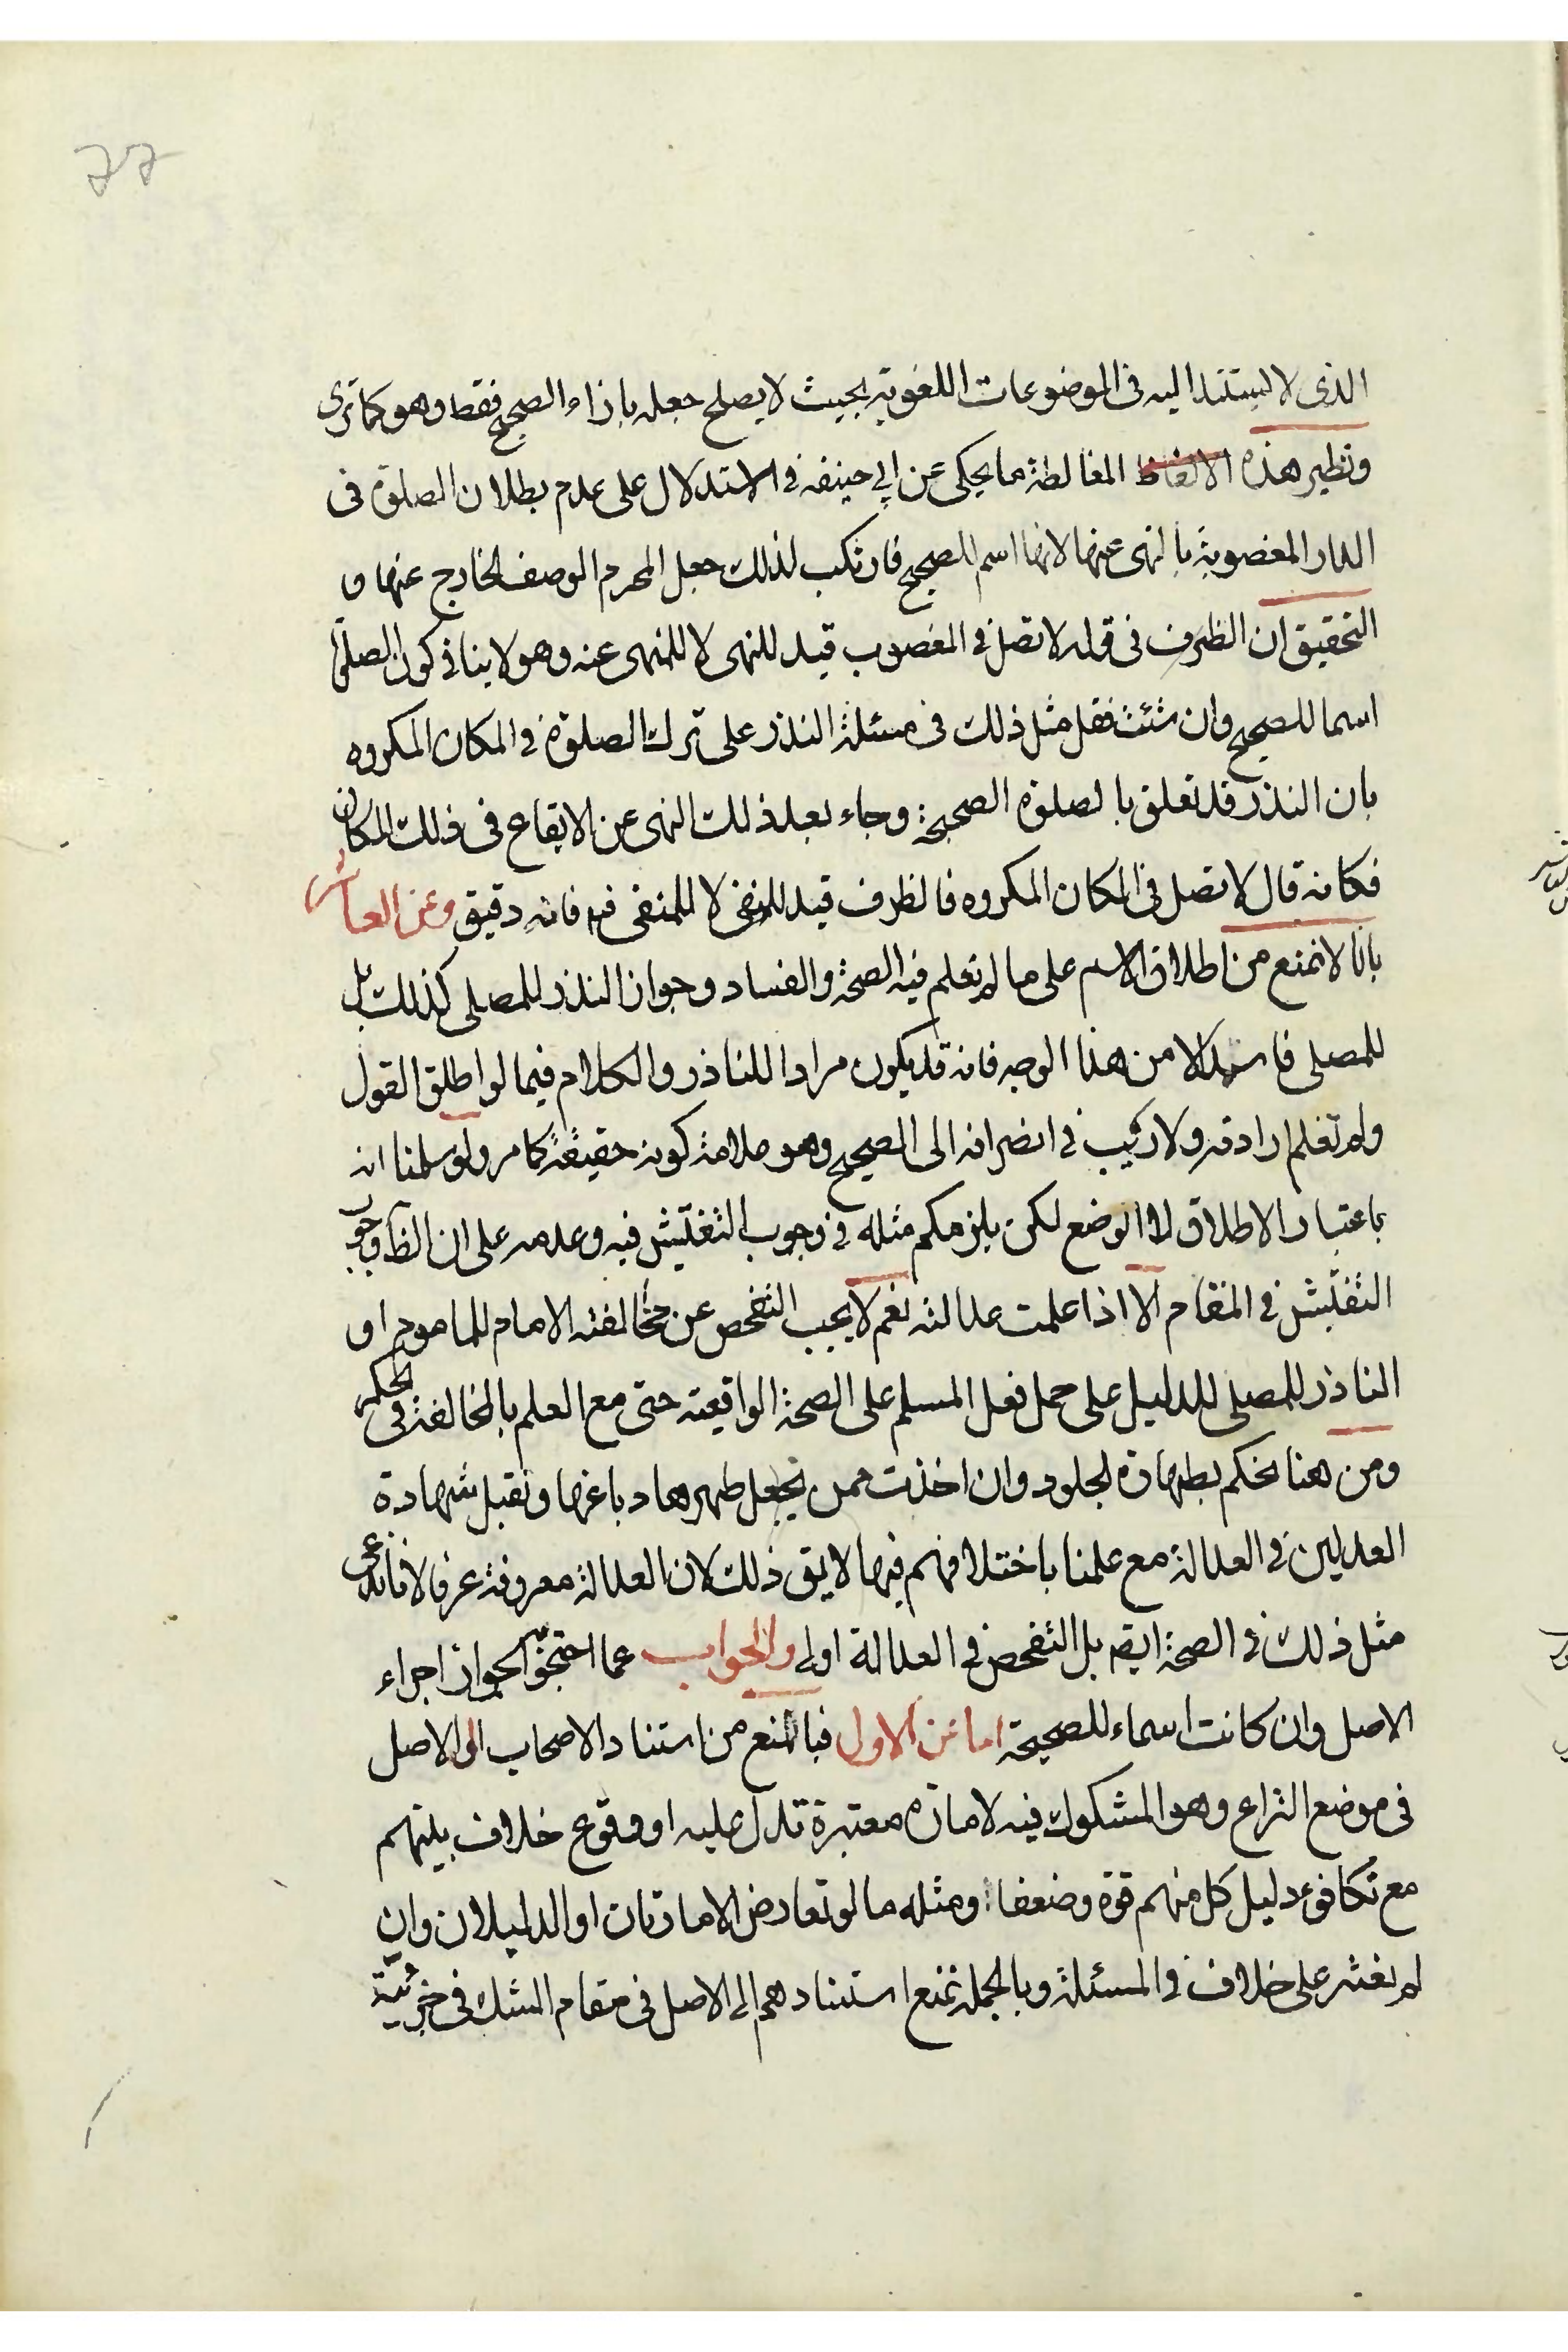 الذى لا يستند اليه فى الموضوعات اللغوية بحيث لا يصلح جعله بازاء الصحيح فقط وهو كما ترى
ونظير هذه الالفاظ المغالطة ما يحكى عن ابي حنيفه في الاستدلال على عدم بطلان الصلوة فى
الدار المغصوبة بالنهى عنها لانها اسم للصحيح فارتكب لذلك جعل المحرم الوصف الخارج عنها و
التحقيق ان الظرف فى قوله لا تصل في المغصوب قيد للنهى لا للمنهى عنه وهو لا ينافي كون الصلوة
اسما للصحيح وان شئت فقل مثل ذلك فى مسئلة النذر على ترك الصلوة في المكان المكروه
بان النذر قد تعلق بالصلوة الصحيحة وجاء بعد ذلك النهى عن الايقاع فى ذلك المكان
فكانه قال لا تصل في المكان المكروه فالظرف قيد للنفى لا للمنفى فيه فانه دقيق وعن العاشر
بانا لا نمنع من اطلاق الاسم على ما لم تعلم فيه الصحة والفساد وجواز النذر للمصلى كذلك بل
للمصلى فاسدا لا من هذا الوجه فانه قد يكون مرادا للناذر والكلام فيما لو اطلق القول
ولم تعلم ارادته ولا ريب في انصرافه الى الصحيح وهو علامة كونه حقيقة كما مر ولو سلمنا انه
باعتبار الاطلاق لا الوضع لكن يلزمكم مثله في وجوب التفتيش فيه وعدمه على ان الظ وجوب
التفتيش في المقام الا اذا علمت عدالته نعم لا يجب التفحص عن مخالفته الامام للماموم او
الناذر للمصلى للدليل على حمل فعل المسلم على الصحة الواقعية حتى مع العلم بالمخالفة فى الحكم
ومن هنا نحكم بطهارة الجلود وان اخذت ممن يجعل طهرها دباغها ونقبل شهادة
العدلين في العدالة مع علمنا باختلافهم فيها لا يق ذلك لان العدالة معروفة عرفا لانا ندعى
مثل ذلك في الصحة ايضم بل التفحص في العدالة اولى والجواب عما احتجوا لجواز اجراء
الاصل وان كانت اسماء للصحيحة اما عن الاول فبالمنع من استناد الاصحاب الى الاصل
فى موضع النزاع وهو المشكوك فيه لامارة معتبرة تدل عليه او وقوع خلاف بينهم
مع تكافوء دليل كل منهم قوة وضعفا ومثله ما لو تعارض الامارتان او الدليلان وان
لم يعثر على خلاف في المسئلة وبالجملة نمنع استنادهم الى الاصل فى مقام الشك فى جزئية